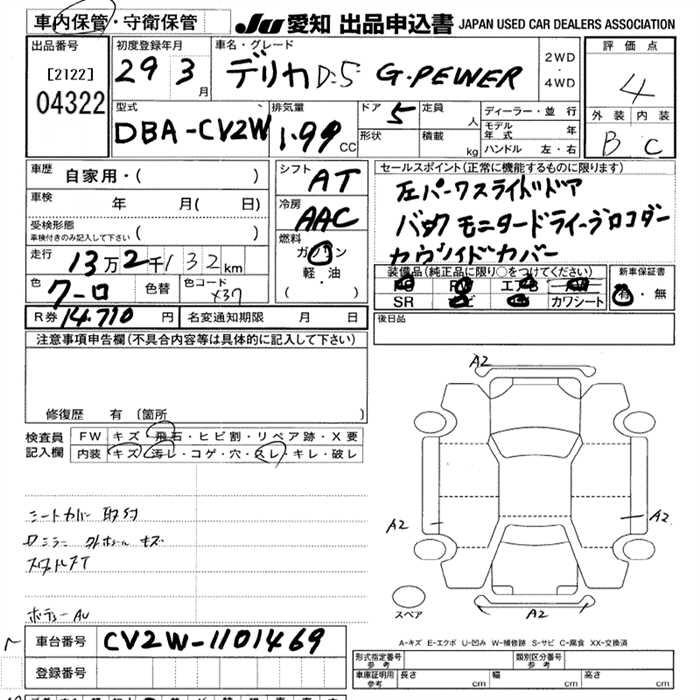 車内保管・守衛保管
JU 愛知 出品申込書 JAPAN USED CAR DEALERS ASSOCIATION
出品番号
[2122]
04322
初度登録年月
29 3月
車名・グレード
デリカD:5 G-PEWER
2WD・4WD
評価点
4
外装 内装
B C
型式
DBA-CV2W
排気量
1.99 CC
ドア 5
定員 人
形状
積載 kg
ディーラー・並行
モデル年式 年
ハンドル 左・右
車歴 自家用・( )
車検 年 月( 日)
受検形態
車検付きのみ記入して下さい ( )
走行 13万2千132km
色 クーロ 色替
色コード X37
R券 14.710 円
名変通知期限 月 日
シフト AT
冷房 AAC
燃料 ガソリン
軽・油
( )
セールスポイント(正常に機能するものに限ります)
左パークスライドドア
バック モニタードライーブロコダー
カヴリイドカバー
装備品(純正品に限り○をつけてください)
PS PW エアB AW
SR ナビ カワシート
新車保証書
有・無
後日品
注意事項申告欄(不具合内容等は具体的に記入して下さい)
修復歴 有 〔箇所 〕
検査員記入欄
FW キズ・飛石・ヒビ割・リペア跡・X要
内装 キズ・汚レ・コゲ・穴・スレ・キレ・破レ
シートカバー 取付
ボディーAU
A2
A2
A2
A2
スペア
A-キズ E-エクボ U-凹み W-補修跡 S-サビ C-腐食 XX-交換済
車台番号 CV2W-1101469
登録番号
形式指定番号 参考
類別区分番号 参考
車庫証明用 参考 長さ cm 幅 cm 高さ cm